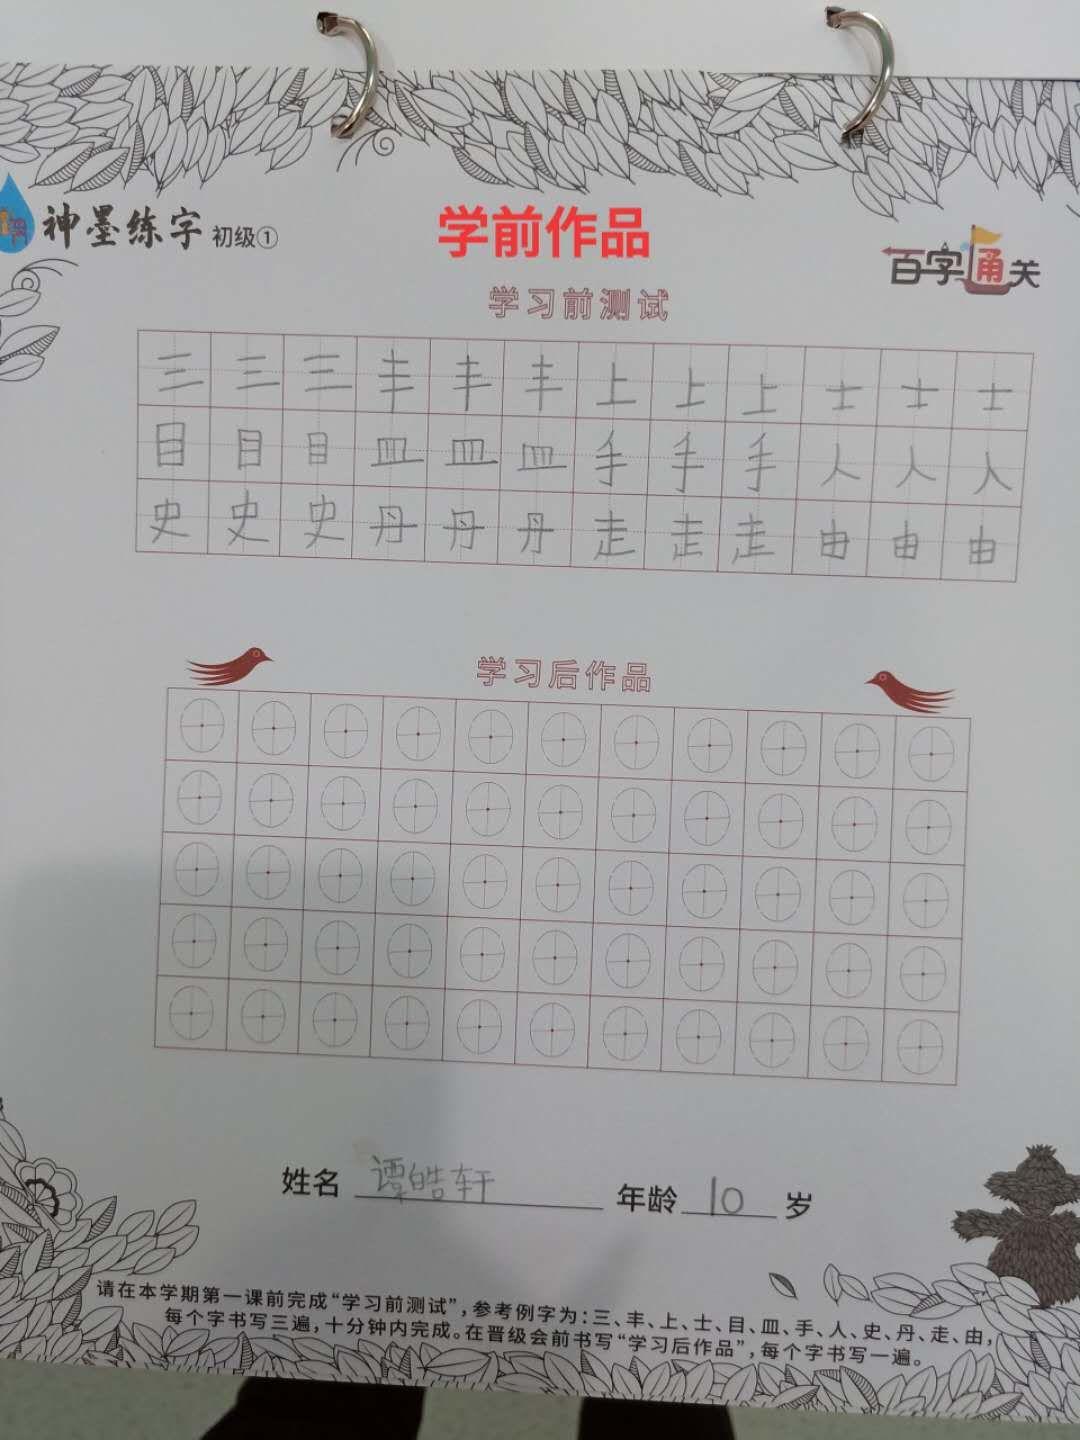 神墨练字 初级①
学前作品
百字通关
学习前测试
三 三 三 丰 丰 丰 上 上 上 士 士 士
目 目 目 皿 皿 皿 手 手 手 人 人 人
史 史 史 丹 丹 丹 走 走 走 由 由 由
学习后作品
姓名 谭皓轩 年龄 10 岁
请在本学期第一课前完成“学习前测试”,参考例字为:三、丰、上、士、目、皿、手、人、史、丹、走、由,
每个字书写三遍,十分钟内完成。在晋级会前书写“学习后作品”,每个字书写一遍。